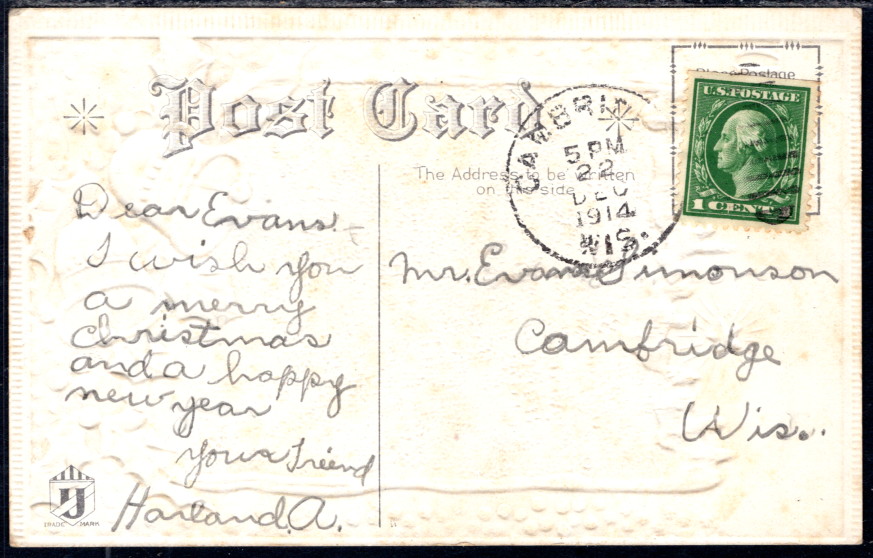 Post Card
Place Postage
The Address to be written
on this side
CAMBRI
5 PM
22
DEC
1914
WIS.
U.S. POSTAGE
1 CENT
Dear Evans.
I wish you
a merry
christmas
and a happy
new year
your Friend
Harland. A.
Mr. Evans Simonson
Cambridge
Wis.
TRADE MARK